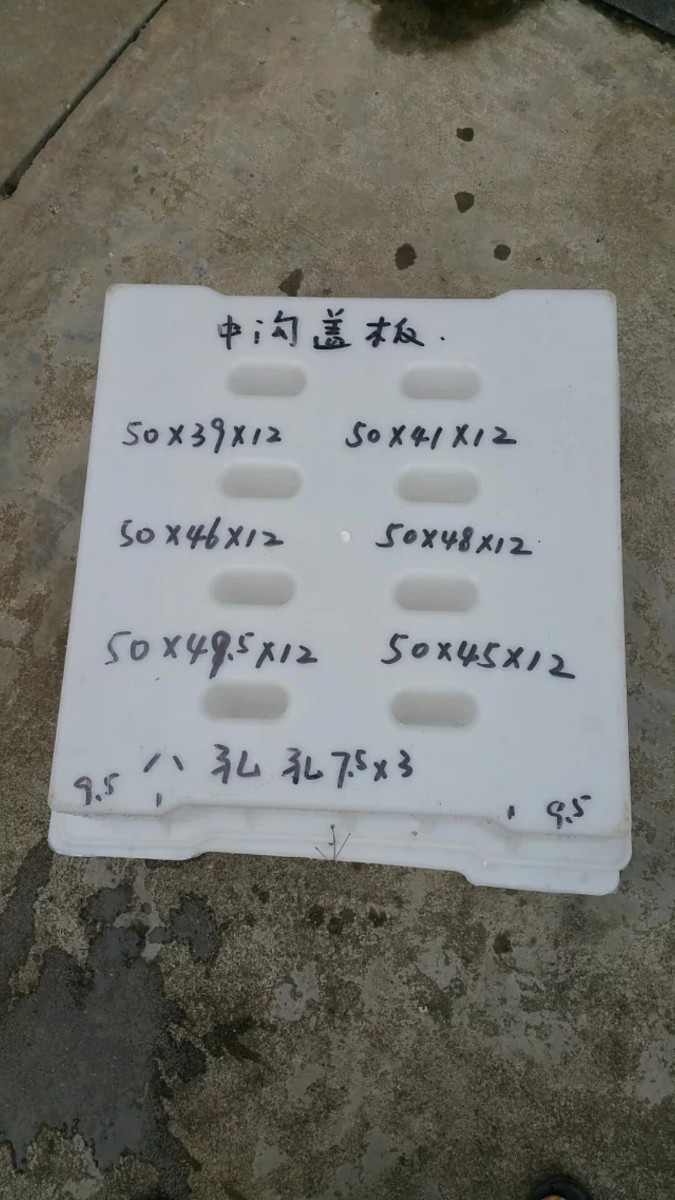 中沟盖板.
50×39×12 50×41×12
50×46×12 50×48×12
50×49.5×12 50×45×12
八孔 孔7.5×3
9.5 9.5